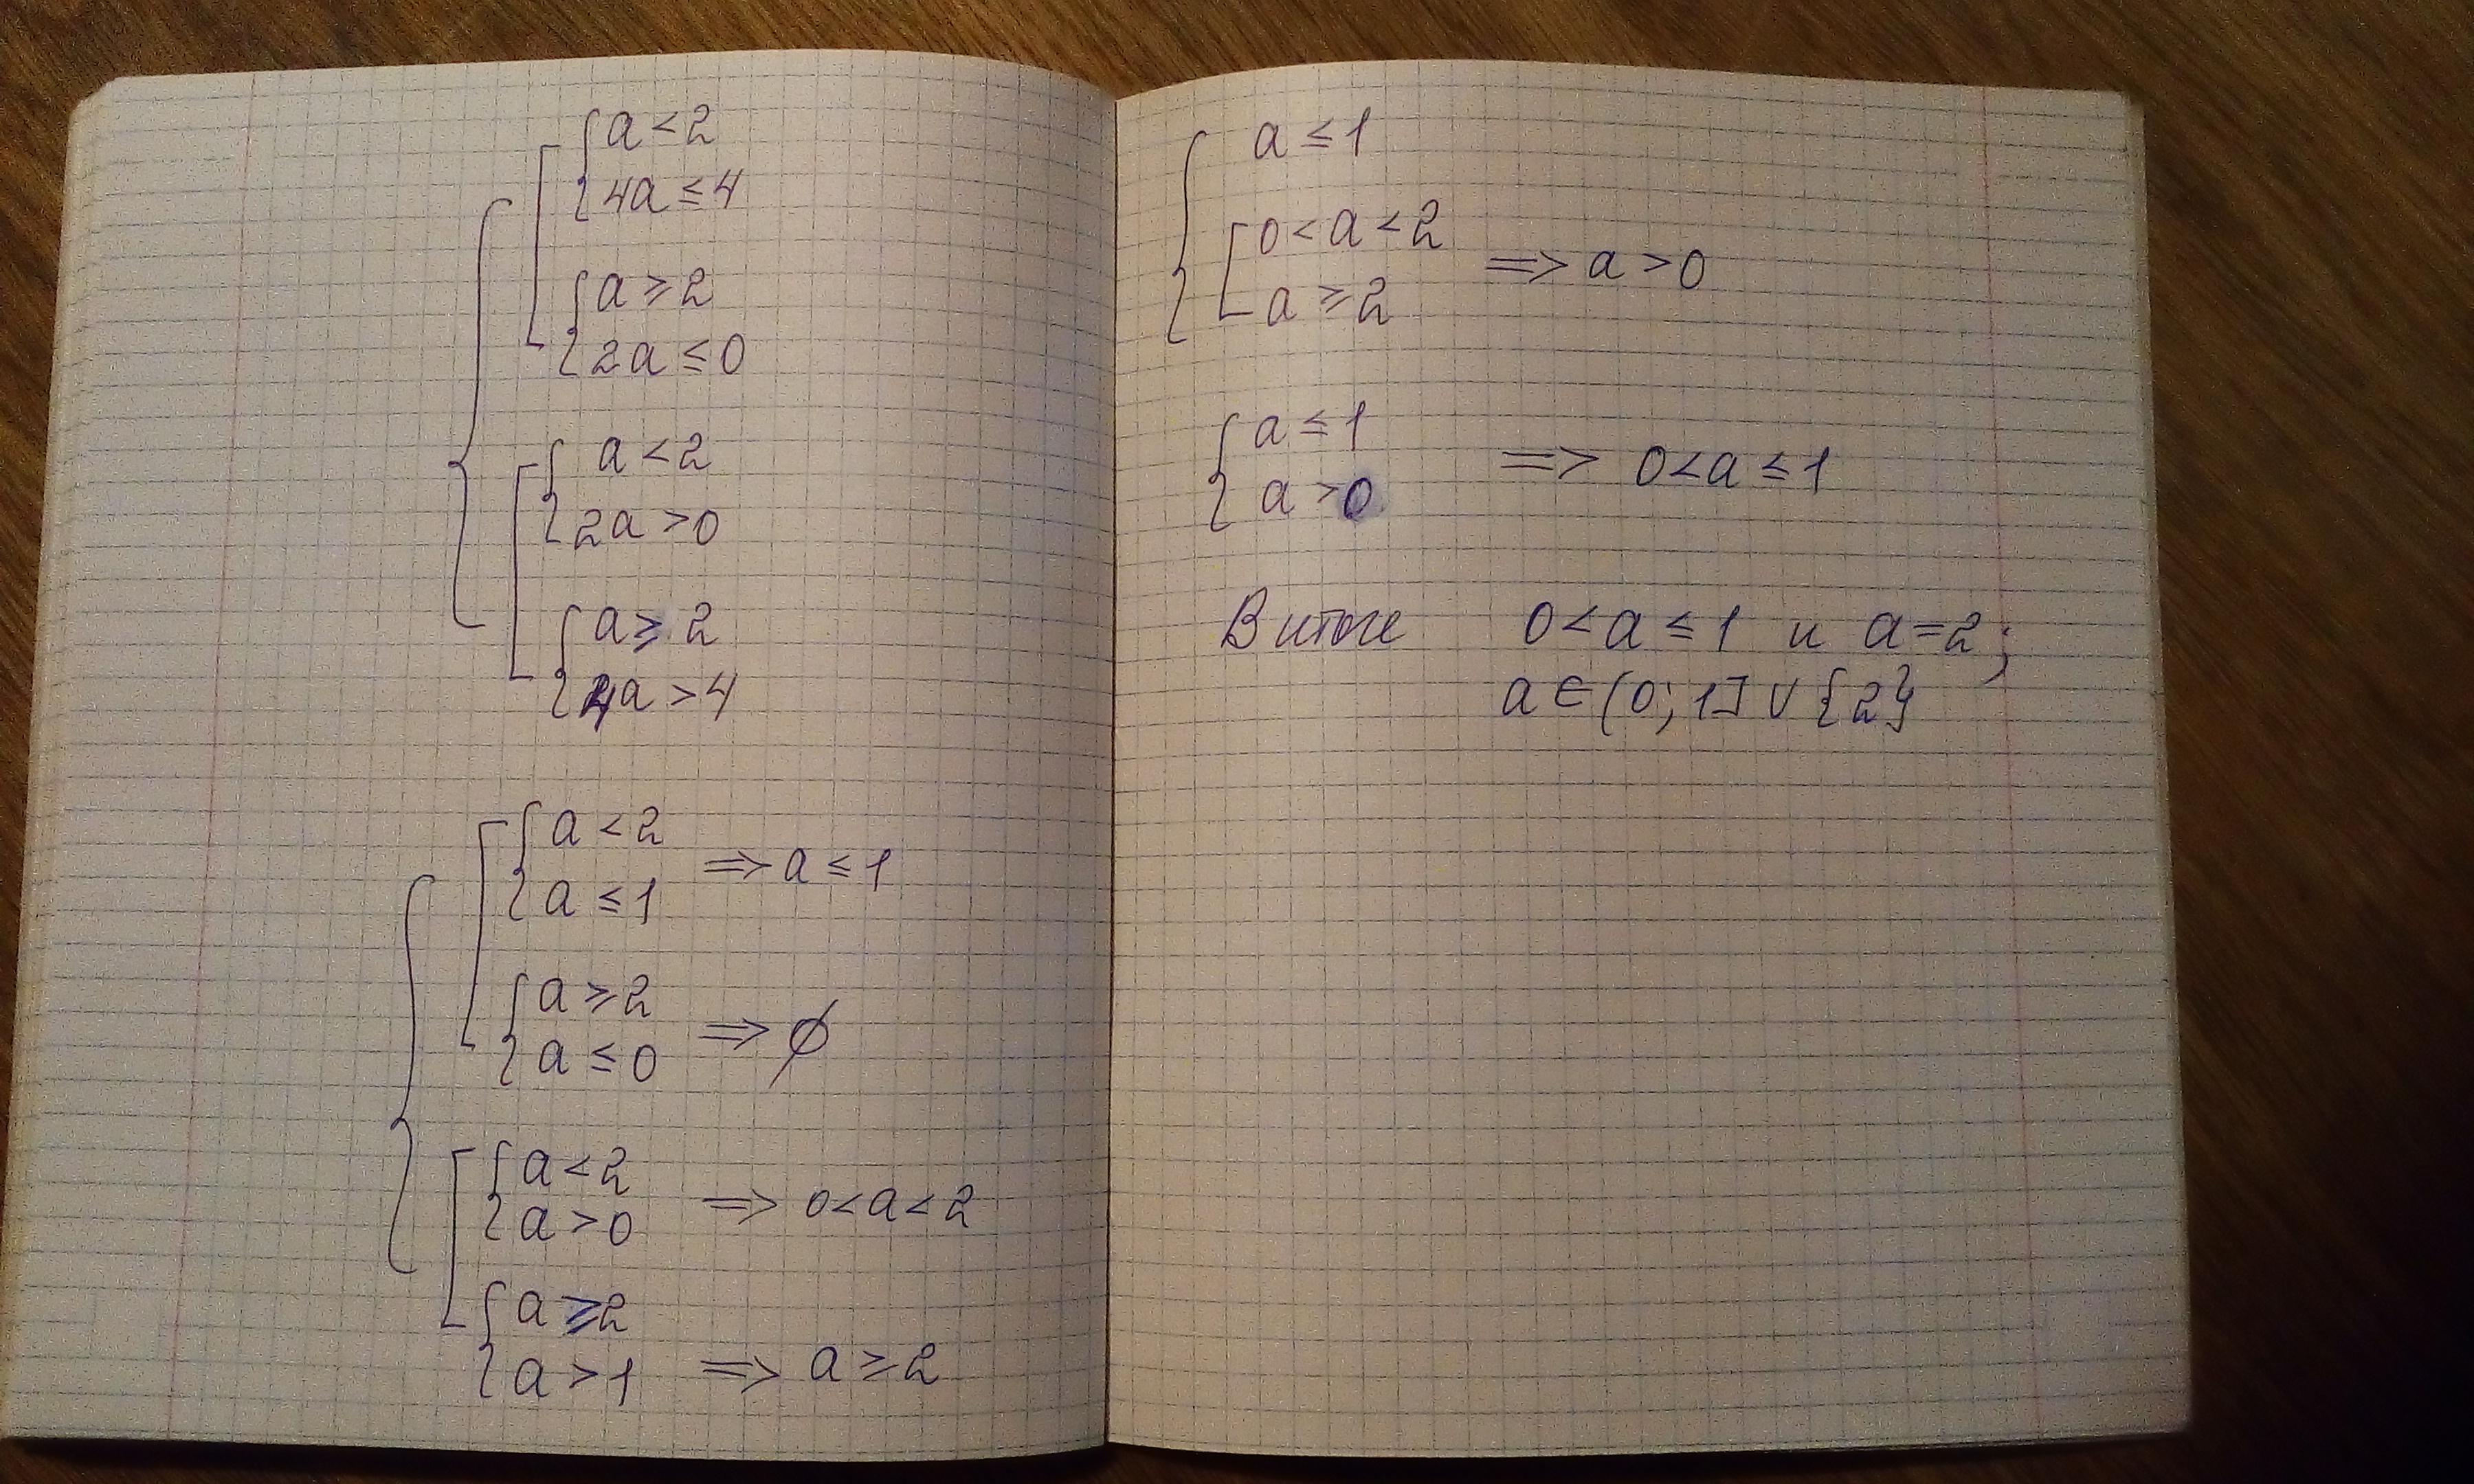 a < 2
4a ≤ 4
a ≥ 2
2a ≤ 0
a < 2
2a > 0
a ≥ 2
4a > 4
a < 2
a ≤ 1 => a ≤ 1
a ≥ 2
a ≤ 0 => ∅
a < 2
a > 0 => 0 < a < 2
a ≥ 2
a > 1 => a ≥ 2
a ≤ 1
0 < a < 2
a ≥ 2 => a > 0
a ≤ 1
a > 0 => 0 < a ≤ 1
В итоге 0 < a ≤ 1 и a = 2;
a ∈ (0; 1] ∪ {2}